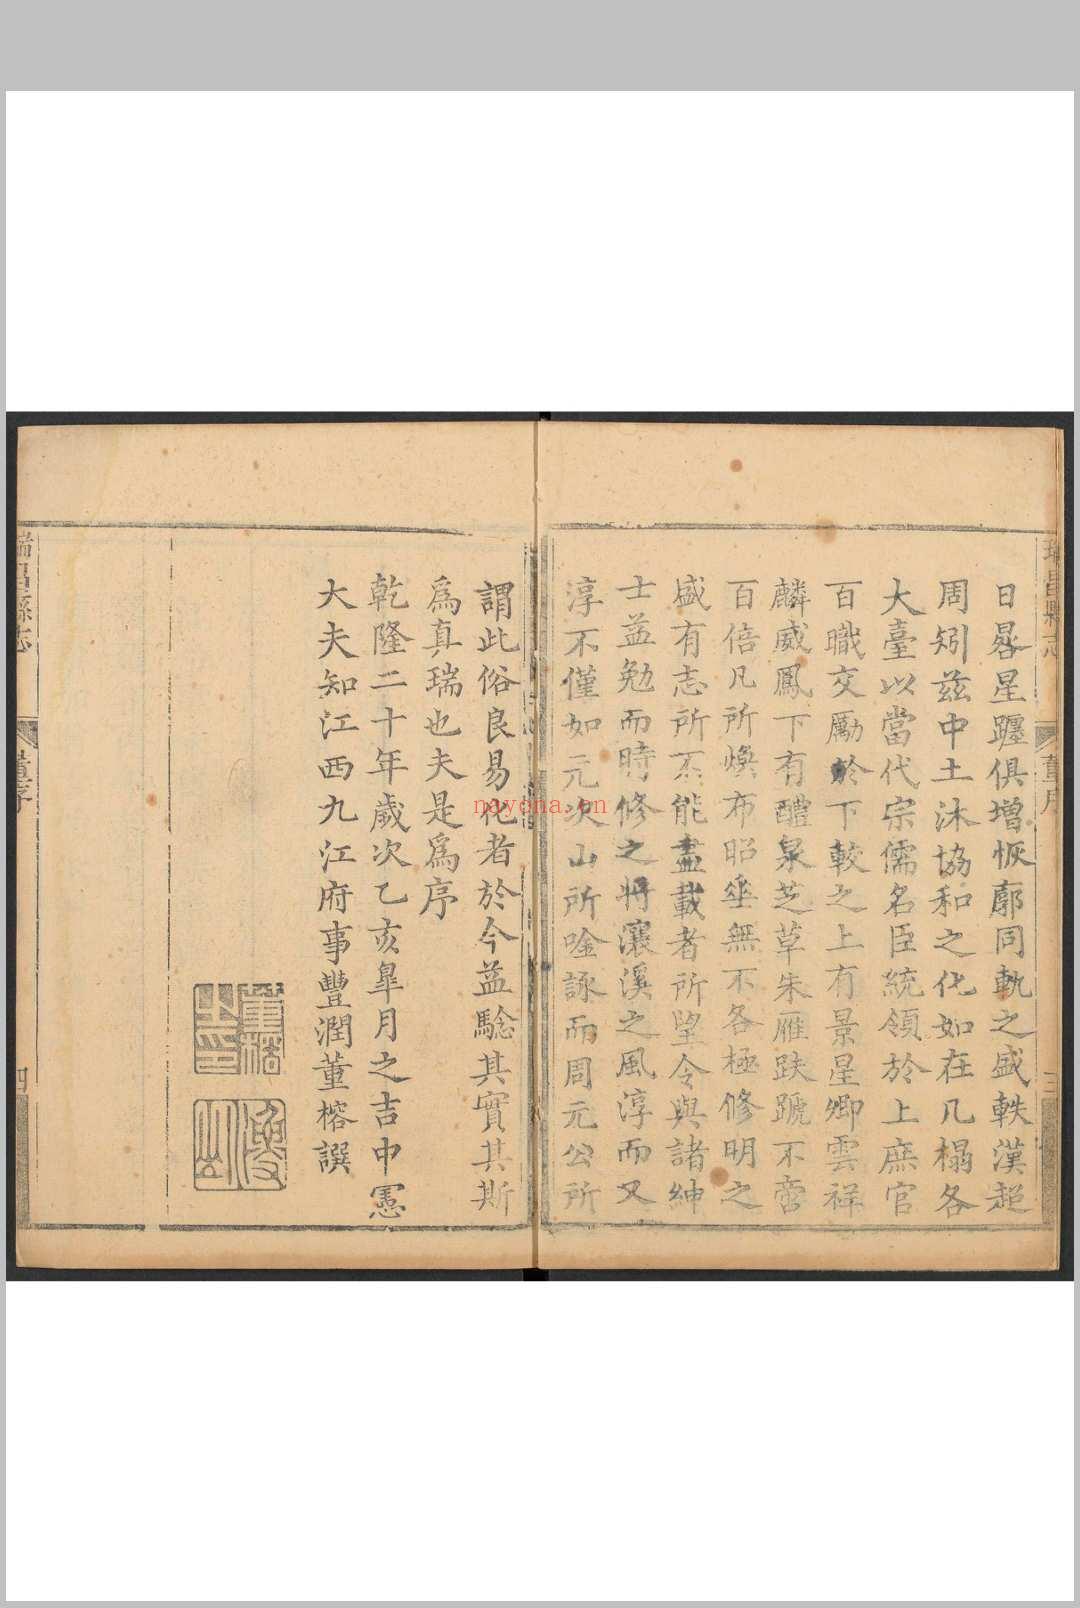 瑞昌縣志
董序
三
日晷星躔俱增恢廓同軌之盛軼漢超
周矧茲中土沐協和之化如在几榻各
大臺以當代宗儒名臣統領於上庶官
百職交勵於下較之上有景星卿雲祥
麟威鳳下有醴泉芝草朱雁趺蹏不啻
百倍凡所煥布昭垂無不各極修明之
盛有志所不能盡載者所望令與諸紳
士益勉而時修之將瀼溪之風淳而又
淳不僅如元次山所唫詠而周元公所
謂此俗良易化者於今益騐其實其斯
爲真瑞也夫是爲序
乾隆二十年歲次乙亥臯月之吉中憲
大夫知江西九江府事豐潤董榕譔
董榕之印
漁山
瑞昌縣志
董序
四
nayona.cn